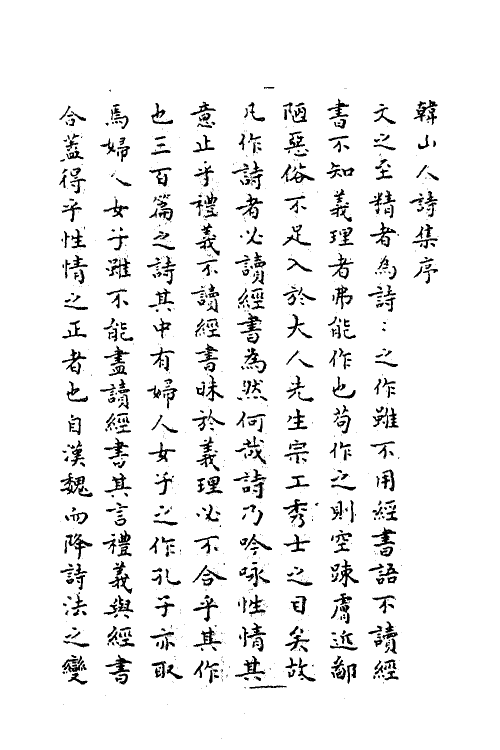 韓山人詩集序
文之至精者為詩〻之作雖不用經書語不讀經
書不知義理者弗能作也苟作之則空踈膚近鄙
陋惡俗不足入於大人先生宗工秀士之目矣故
凡作詩者必讀經書為然何哉詩乃吟咏性情其
意止乎禮義不讀經書昧於義理必不合乎其作
也三百篇之詩其中有婦人女子之作孔子亦取
焉婦人女子雖不能盡讀經書其言禮義與經書
合蓋得乎性情之正者也自漢魏而降詩法之變